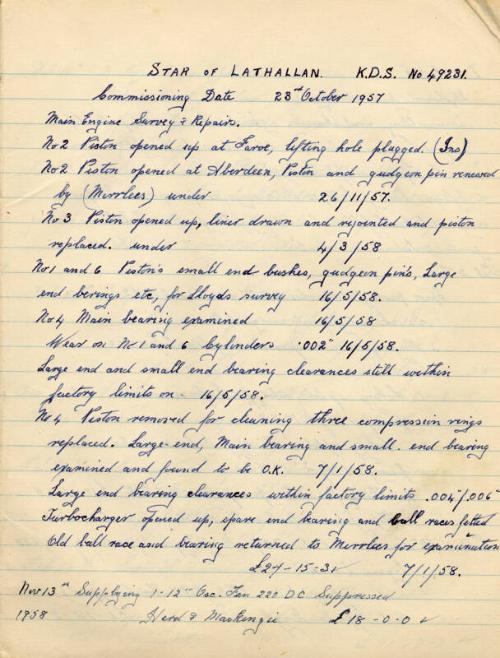 STAR OF LATHALLAN. K.D.S. No 49231.
Commissioning Date 23rd October 1957
Main Engine Survey & Repairs.
No 2 Piston opened up at Faroe, lifting hole plugged. (Ins)
No 2 Piston opened at Aberdeen, Piston and gudgeon pin renewed
by (Mirrlees) under 26/11/57.
No 3 Piston opened up, liner drawn and rejointed and piston
replaced. under 4/3/58
No 1 and 6 Piston's small end bushes, gudgeon pin's, Large
end berings etc, for Lloyds survey 16/5/58.
No 4 Main bearing examined 16/5/58
Wear on No 1 and 6 Cylinders .002" 16/5/58.
Large end and small end bearing clearances still within
factory limits on 16/5/58.
No 4 Piston removed for cleaning three compression rings
replaced. Large end, Main bearing and small end bearing
examined and found to be O.K. 7/1/58.
Large end bearing clearances within factory limits .004"/.006"
Turbocharger opened up, spare end bearing and ball races fitted
Old ball race and bearing returned to Mirrlees for examination
£27-15-3 7/1/58.
Nov 13th Supplying 1-12" Osc. Fan 220 DC Suppressed
1958 Herd & Mackenzie £18-0-0